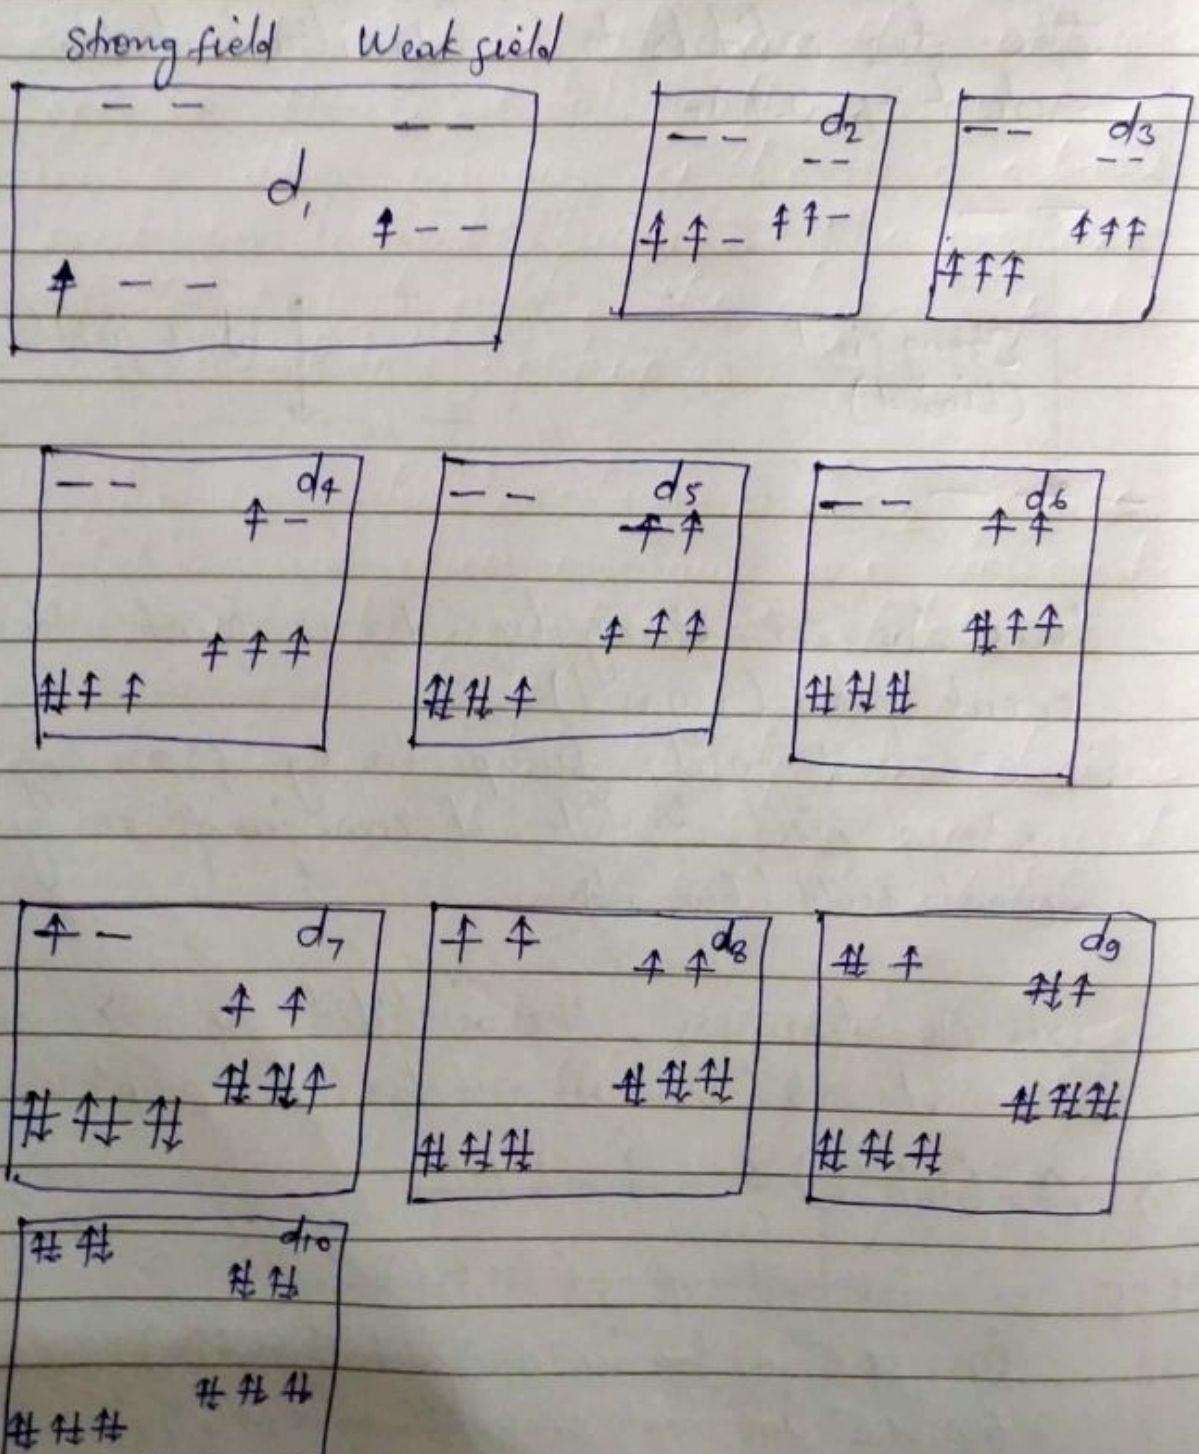 Strong field Weak field
d1
d2
d3
d4
d5
d6
d7
d8
d9
d10